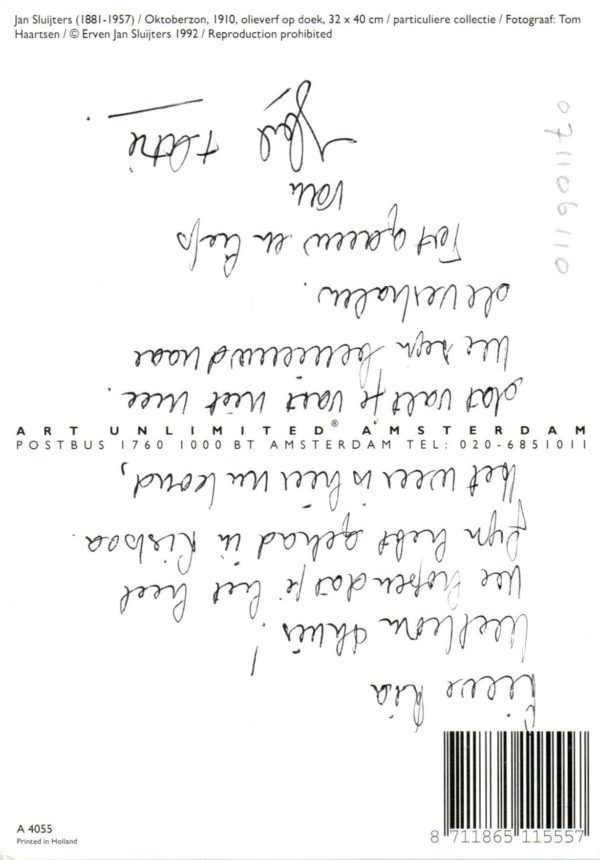 Jan Sluijters (1881-1957) / Oktoberzon, 1910, olieverf op doek, 32 x 40 cm / particuliere collectie / Fotograaf: Tom
Haartsen / © Erven Jan Sluijters 1992 / Reproduction prohibited
071106110
Lieve Ria
Welkom thuis!
We hopen dat je het heel
fijn hebt gehad in
Het weer is hier nu koud,
dat valt je vast niet mee.
We zijn benieuwd naar
de verhalen.
Tot gauw en liefs
van
+
ART UNLIMITED® AMSTERDAM
POSTBUS 1760 1000 BT AMSTERDAM TEL: 020-6851011
A 4055
Printed in Holland
8 711865 115557